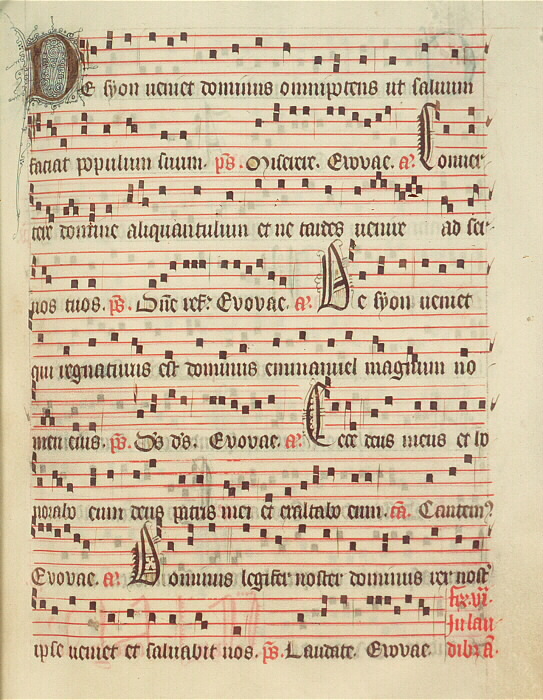 De syon ueniet dominus omnipotens ut saluum
faciat populum suum. ps. Miserere. Evovae. a. Conuer
tere domine aliquantulum et ne tardes uenire ad ser
uos tuos. ps. Dne ref. Evovae. a. De syon ueniet
qui regnaturus est dominus emmanuel magnum no
men eius. ps. Ds ds. Evovae. a. Ecce deus meus et ho
norabo eum deus patris mei et exaltabo eum. ca. Cantem
Evovae. a. Dominus legifer noster dominus rex nost
ipse ueniet et saluabit nos. ps. Laudate. Evovae.
fr. vi.
In lau
dib. a.